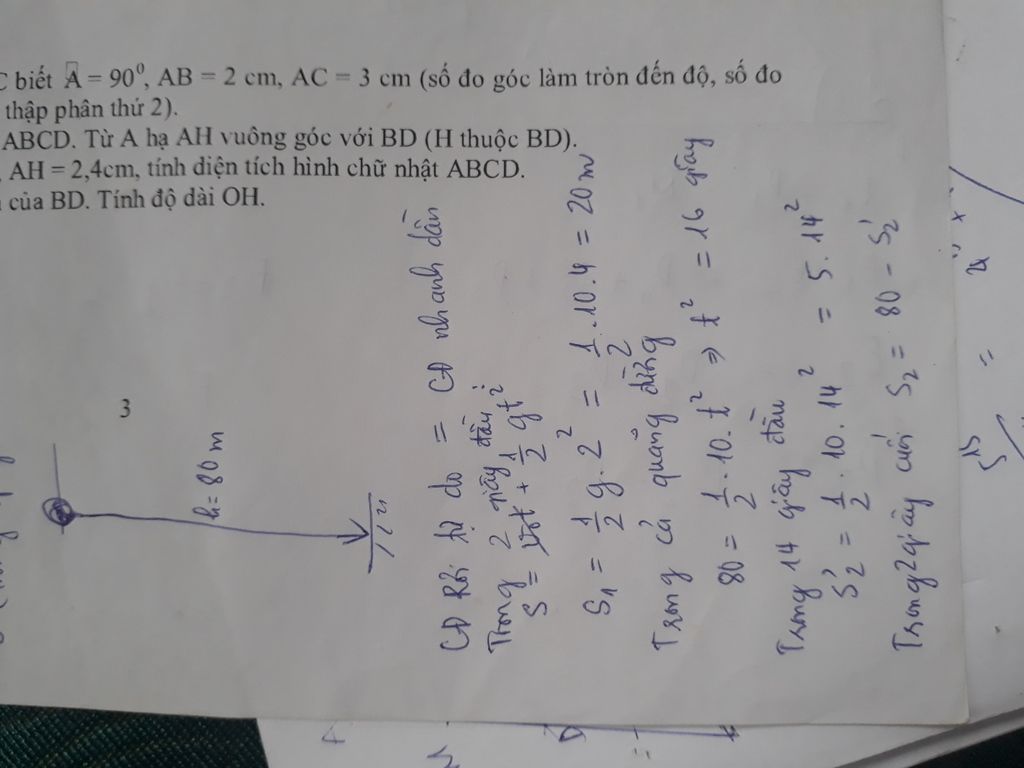 C biết A = 90⁰, AB = 2 cm, AC = 3 cm (số đo góc làm tròn đến độ, số đo
thập phân thứ 2).
ABCD. Từ A hạ AH vuông góc với BD (H thuộc BD).
AH = 2,4cm, tính diện tích hình chữ nhật ABCD.
của BD. Tính độ dài OH.
3
h = 80 m
CĐ Rơi tự do = CĐ nhanh dần
Trong 2 giây đầu:
S = v₀t + 1/2 gt²
S₁ = 1/2 g. 2² = 1/2 . 10.4 = 20 m
Trong cả quãng đường
80 = 1/2 . 10. t² ⇒ t² = 16 giây
Trong 14 giây đầu
S₂' = 1/2 . 10. 14² = 5. 14²
Trong 2 giây cuối S₂ = 80 - S₂'